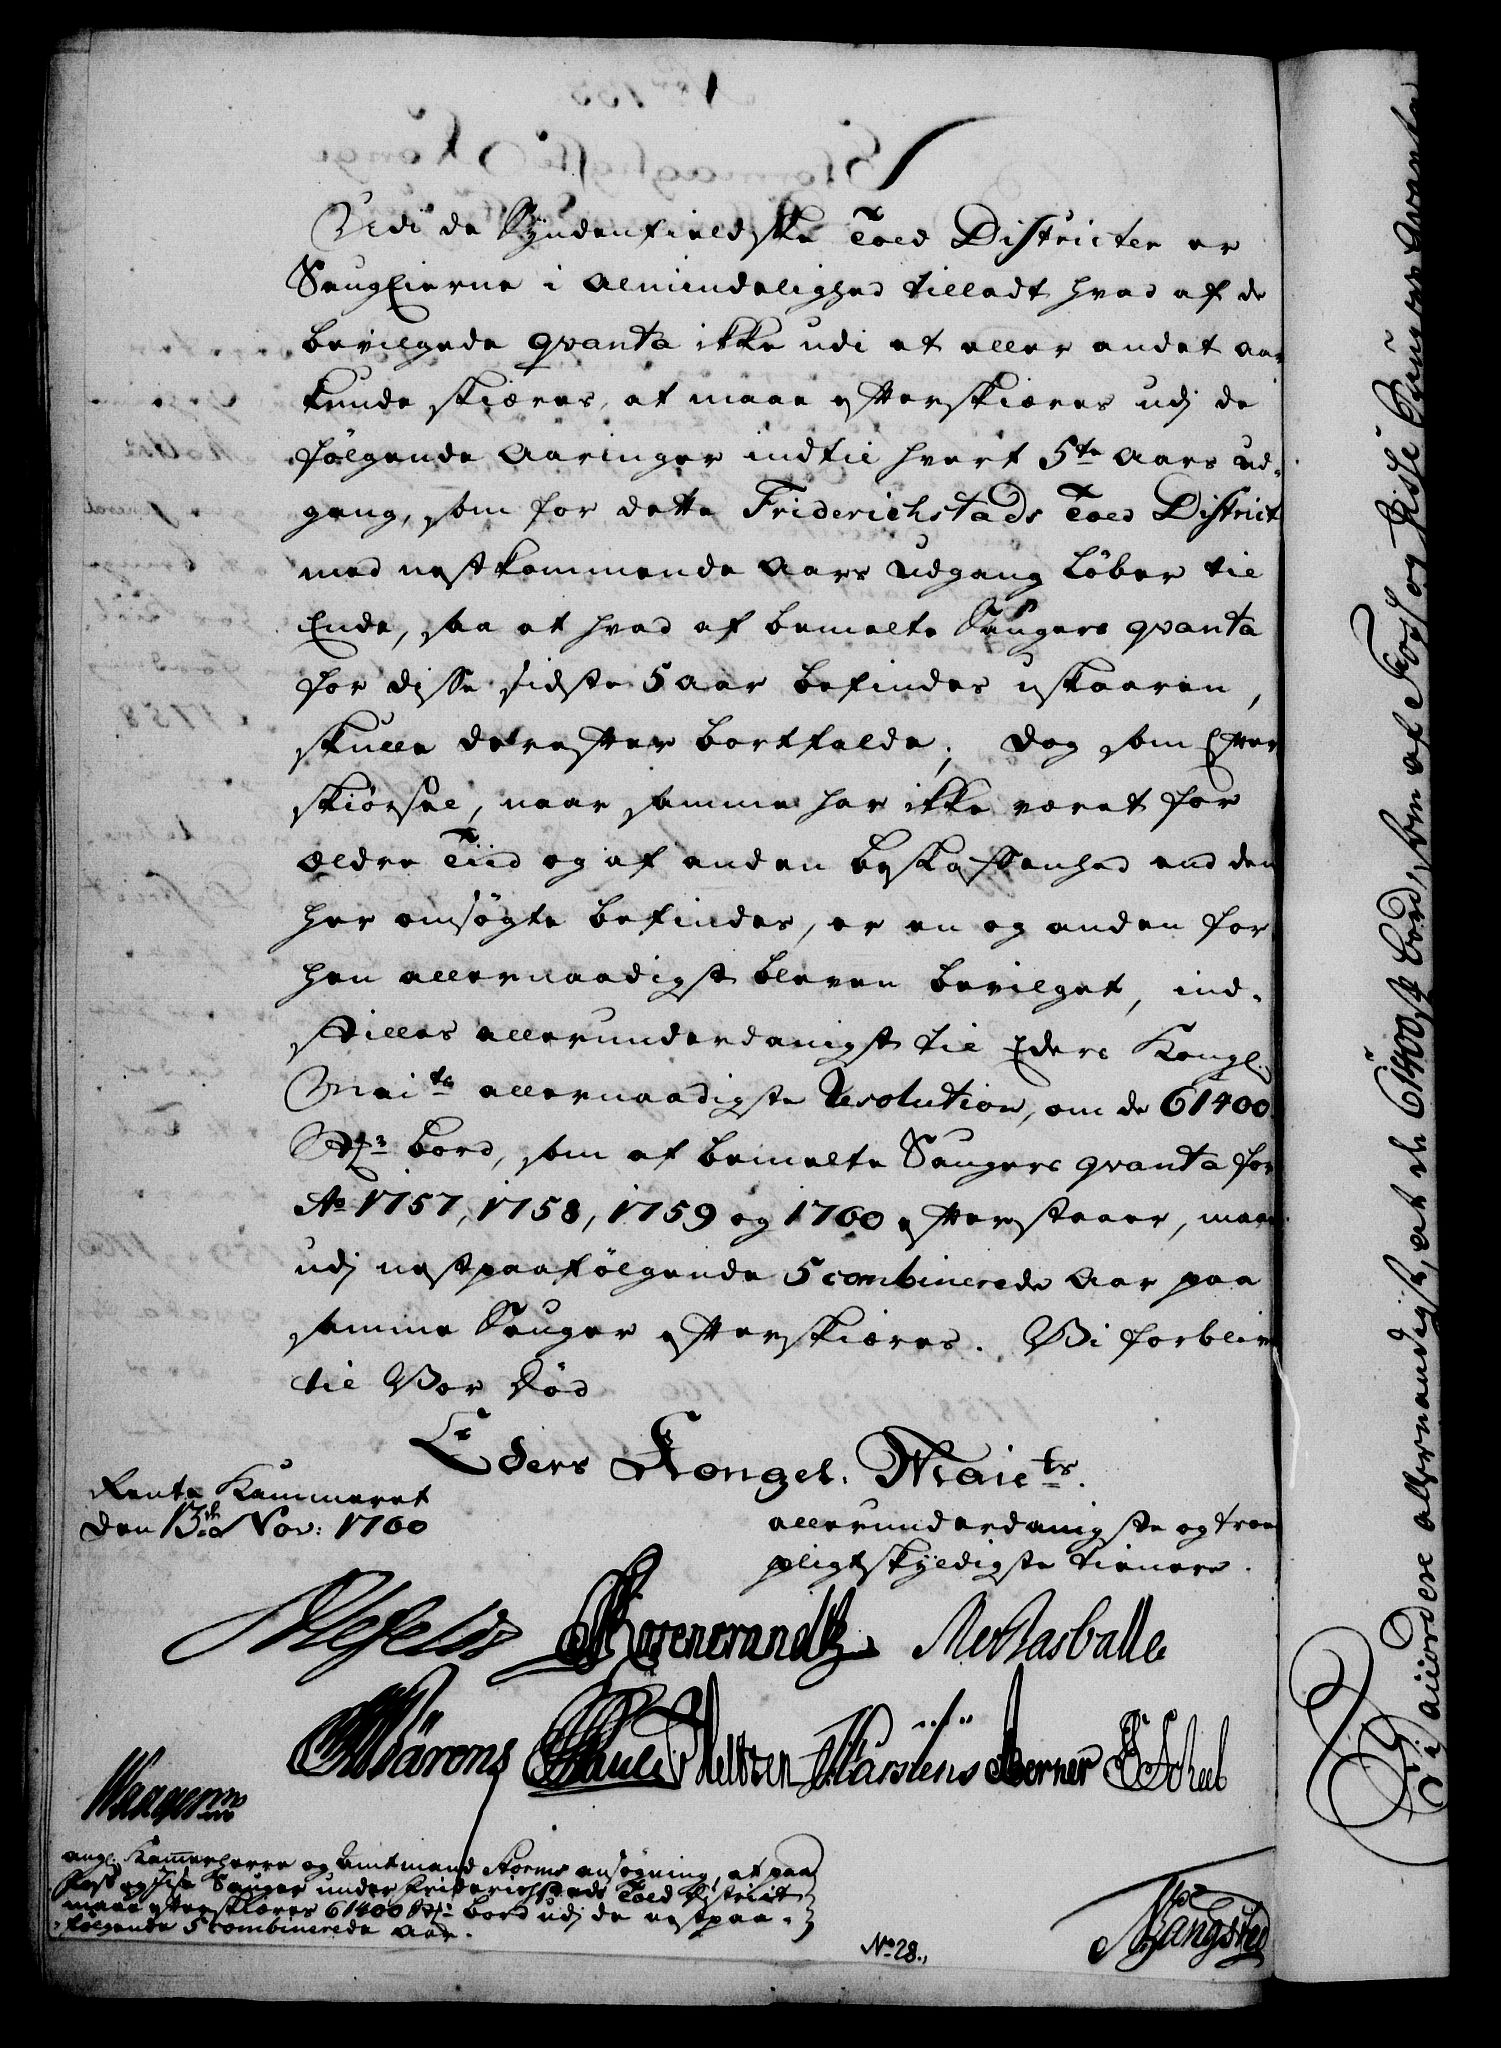 Udi de Syndenfieldske Told Districter er
SaugEierne i Almindelighed tilladt hvad af de
bevilgede qvanta ikke udi et eller andet aar
kunde skiæres, at maae efterskiæres udj de
følgende Aaringer indtil hvert 5te Aars Ud-
gang, som for dette Friderichstads Told District
med nestkommende Aars Udgang Løber til
Ende, saa at hvad af bemelte Saugers qvanta
for disse sidste 5 aar befindes uskaaren,
skulle derefter bortfalde; Dog som Efter
skiørsel, naar samme har ikke været for
ældre Tiid og af anden beskaffenhed end den
her omsøgte befindes, er en og anden for
hen allernaadigst bleven bevilget, ind-
stilles allerunderdanigst til Eders Kongl.
Mai.ts allernaadigste Resolution, om de 61400
St. bord, som af bemelte Saugers qvanta for
Ao 1757, 1758, 1759 og 1760 efterstaaer, maae
udj nestpaafølgende 5 combinerede Aar paa
samme Sauger efterskiæres. Vi forblive
til Vor Død
Eders Kongel. Maiets.
Rente Kammeret
den 13de Nov: 1760
allerunderdanigste og troe
pligtskyldigste tienere.
Rosencrandtz
Holtzen Karstens Berner Scheel
ang. Kammerherre og Amtmand Storms ansøgning, at paa
Foss og Sisle Sauger under Friderichstads Told District
maae efterskiæres 61400 St. bord udj de nestpaa-
følgende 5 combinerede Aar.
No 28.
Bangsted
allernaadigst, at de 61400 st. bord, som af Foss og Sisle Saugers Qvanta